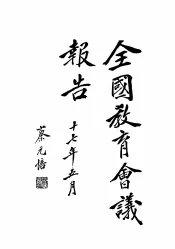 全國教育會議
報告
十七年五月
蔡元培